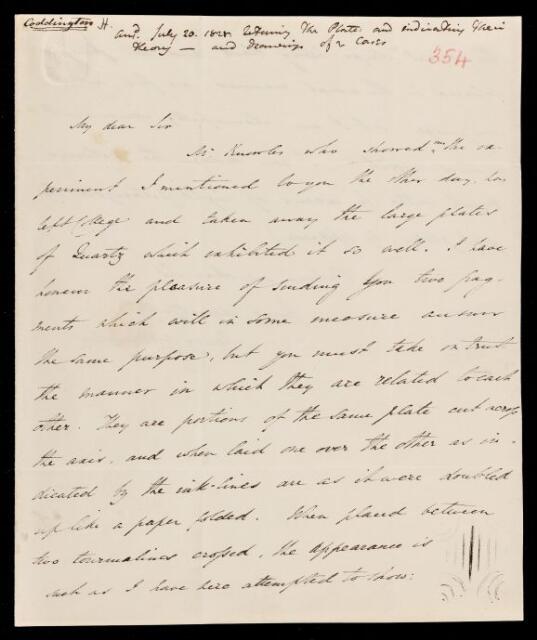 Coddington H.
ansd. July 20. 1828 returning the Plates and indicating their
theory — and drawings of 2 Cases
354
My dear Sir
Mr. Knowles who showed me the ex-
periment I mentioned to you the other day, has
left College and taken away the large plates
of Quartz which exhibited it so well. I have
however the pleasure of sending you two frag-
ments which will in some measure answer
the same purpose, but you must take on trust
the manner in which they are related to each
other. They are portions of the same plate cut across
the axis, and when laid one over the other as in-
dicated by the ink-lines are as it were doubled
up like a paper folded. When placed between
two tourmalines crossed, the appearance is
such as I have here attempted to show: